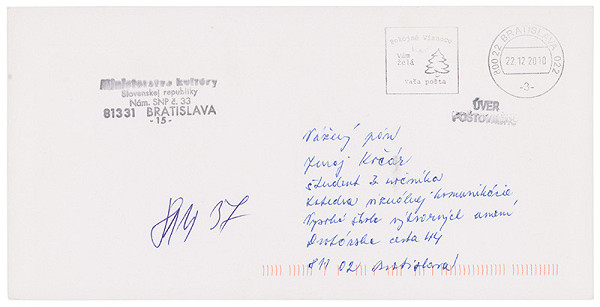 pokojné Vianoce
vám
želá
vaša pošta
80022 BRATISLAVA 022
22.12 2010
-3-
Ministerstvo kultúry
Slovenskej republiky
Nám. SNP č. 33
81331 BRATISLAVA
-15-
ÚVER
POŠTOVNÉHO
Vážený pán
Juraj Kočár
študent 3. ročníka
Katedra vizuálnej komunikácie
Vysoká škola výtvarných umení
cesta 44
811 02 Bratislava
37